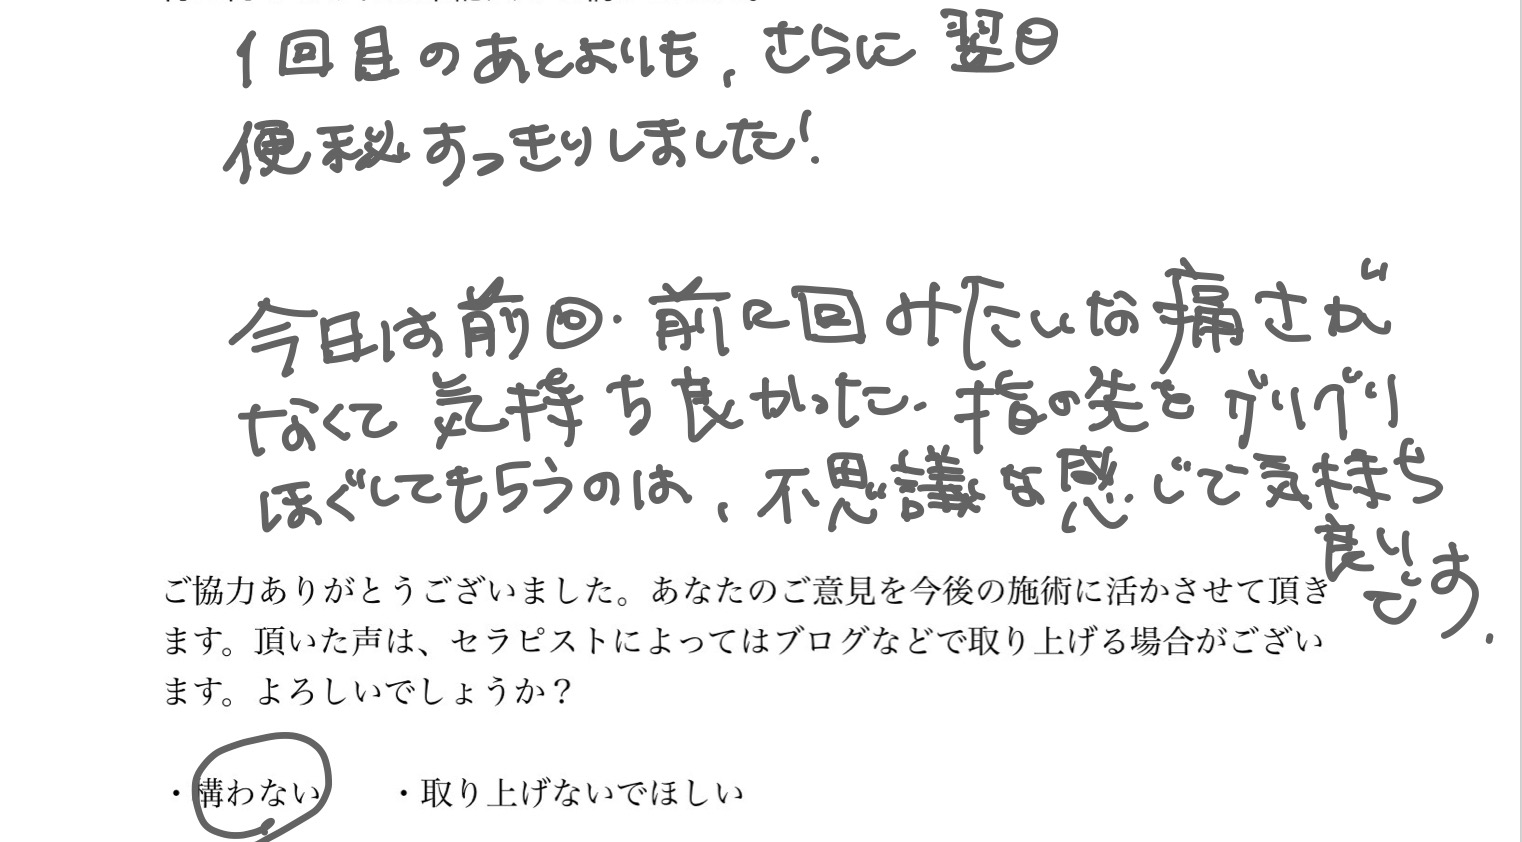 1回目のあとよりも,さらに翌日
便秘すっきりしました!
今日は前回・前々回みたいな痛さが
なくて気持ち良かった.指の先をグリグリ
ほぐしてもらうのは,不思議な感じで気持ち
良いです.
ご協力ありがとうございました。あなたのご意見を今後の施術に活かさせて頂き
ます。頂いた声は、セラピストによってはブログなどで取り上げる場合がござい
ます。よろしいでしょうか？
・構わない　　・取り上げないでほしい